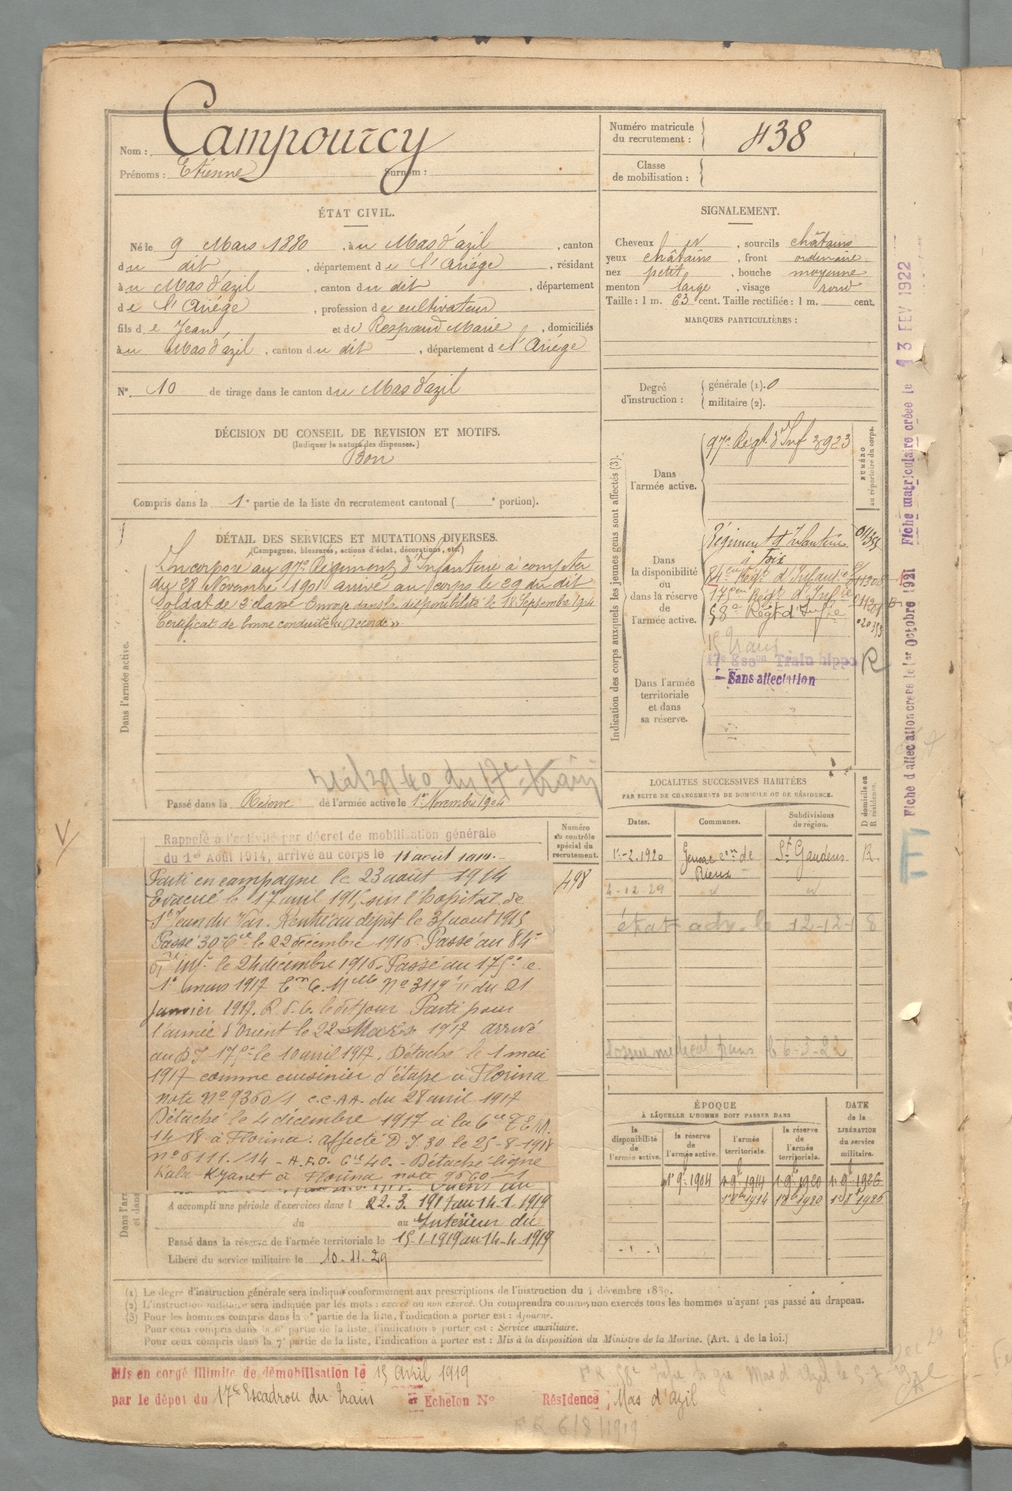 Nom : Campourcy
Prénoms : Etienne Surnom :
Numéro matricule
du recrutement : 438
Classe
de mobilisation :
ÉTAT CIVIL.
Né le 9 Mars 1880, à u Mas d'azil, canton
du dit, département de l'Ariége, résidant
à u Mas d'azil, canton du dit, département
de l'Ariége, profession de cultivateur
fils de Jean et de Respaud Marie, domiciliés
à u Mas d'azil, canton du dit, département de l'Ariége
N° 10 de tirage dans le canton du Mas d'azil
DÉCISION DU CONSEIL DE REVISION ET MOTIFS.
(Indiquer la nature des dispenses.)
Bon
Compris dans la 1e partie de la liste du recrutement cantonal ( e portion).
DÉTAIL DES SERVICES ET MUTATIONS DIVERSES.
(Campagnes, blessures, actions d'éclat, décorations, etc.)
Dans l'armée active.
Incorporé au 97e Régiment d'Infanterie à compter
du 28 Novembre 1901 arrivé au corps le 29 du dit
Soldat de 2e classe Envoyé dans la disponibilité le 18 Septembre 1904
Certificat de bonne conduite "accordé"
Passé dans la Réserve de l'armée active le 1er Novembre 1904
Rappelé à l'activité par décret de mobilisation générale
du 1er Août 1914, arrivé au corps le 11 août 1914.
Parti en campagne le 23 août 1914
Evacué le 17 avril 1915 sur l'hopital de
St Jean du Var. Rentré au dépôt le 31 aout 1915
Passé 30e Cie le 22 décembre 1916. Passé au 84e
RI Inf. le 24 décembre 1916. Passé au 175e le
1er mars 1917 No 3119 du 21
janvier 1917. Parti pour
l'armée d'Orient le 22 Mars 1917 arrivé
au DI 175e le 10 avril 1917. Détaché le 1 mai
1917 comme cuisinier d'étape à Florina
note No 9360/1 C.C.AA. du 28 avril 1917
Détaché le 4 décembre 1917 à la 6e T.E.M.
14 18 à Florina. affecté D I.30 le 25-8-1918
no 6111./14 - A.F.O. Cie 40. - Détaché ligne
à Florina note 9560-1
Orient du
A accompli une période d'exercices dans l 22.3.1917 au 14-1-1919
du au Intérieur du
Passé dans la réserve de l'armée territoriale le 15.1.1919 au 14-4-1919
Libéré du service militaire le 10.11.29
Numéro
du contrôle
spécial du
recrutement.
498
SIGNALEMENT.
Cheveux et, sourcils châtains
yeux châtains, front ordinaire
nez petit, bouche moyenne
menton large, visage rond
Taille : 1 m. 63 cent. Taille rectifiée : 1 m. cent.
MARQUES PARTICULIÈRES :
Degré
d'instruction :
générale (1). 0
militaire (2).
Indication des corps auxquels les jeunes gens sont affectés (3).
Dans
l'armée active.
97e Régt d'Inf 3923
NUMÉRO
au répertoire du corps.
Dans
la disponibilité
ou
dans la réserve
de
l'armée active.
Régiment d'Infanterie
à Foix
84em Regt d'Infanterie
175em Regt d'Infrie
58e Regt d'Infrie
17e Escon Train hippo
R
Sans affectation
Dans l'armée
territoriale
et dans
sa réserve.
LOCALITES SUCCESSIVES HABITÉES
PAR SUITE DE CHANGEMENTS DE DOMICILE OU DE RÉSIDENCE.
Dates.
Communes.
Subdivisions
de région.
D domicile ou
R résidence.
12-2-1920 con de Rieux St Gaudens R.
4-12-29
état adr. le 12-12-18
dossier medical 6-3-22
ÉPOQUE
À LAQUELLE L'HOMME DOIT PASSER DANS
DATE
de la
LIBÉRATION
du service
militaire.
la
disponibilité
de
l'armée active.
la réserve
de
l'armée active.
l'armée
territoriale.
la réserve
de
l'armée
territoriale.
1er 9e 1904 1er 9e 1914 1er 9e 1920 1er 9e 1926
1er 8bre 1914 1er 8bre 1920 1er 8bre 1926
Fiche d'affectation créée le 1er Octobre 1921
Fiche matriculaire créée le 13 FEV 1922
(1) Le degré d'instruction générale sera indiqué conformément aux prescriptions de l'instruction du 4 décembre 1889.
(2) L'instruction militaire sera indiquée par les mots : exercé ou non exercé. On comprendra comme non exercés tous les hommes n'ayant pas passé au drapeau.
(3) Pour les hommes compris dans la 5e partie de la liste, l'indication à porter est : Ajourné.
Pour ceux compris dans la 6e partie de la liste, l'indication à porter est : Service auxiliaire.
Pour ceux compris dans la 7e partie de la liste, l'indication à porter est : Mis à la disposition du Ministre de la Marine. (Art. 4 de la loi.)
Mis en congé illimité de démobilisation le 15 avril 1919
par le dépôt du 17e Escadron du train Echelon No Résidence : Mas d'azil
6/8/1919